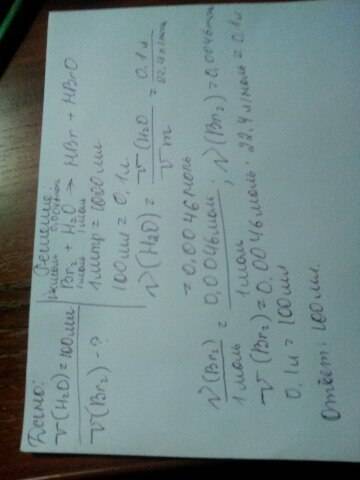 Дано:
V(H₂O) = 100 мл
V(Br₂) - ?
Решение:
Br₂ + H₂O → HBr + HBrO
1 моль 1 моль
1 литр = 1000 мл
100 мл = 0,1 л
ν(H₂O) = V(H₂O / Vm = 0,1 л / 22,4 л/моль
= 0,0046 моль
ν(Br₂) / 1 моль = 0,0046 моль / 1 моль, ν(Br₂) = 0,0046 моль
V(Br₂) = 0,0046 моль · 22,4 л/моль = 0,1 л
0,1 л = 100 мл
Ответ: 100 мл.